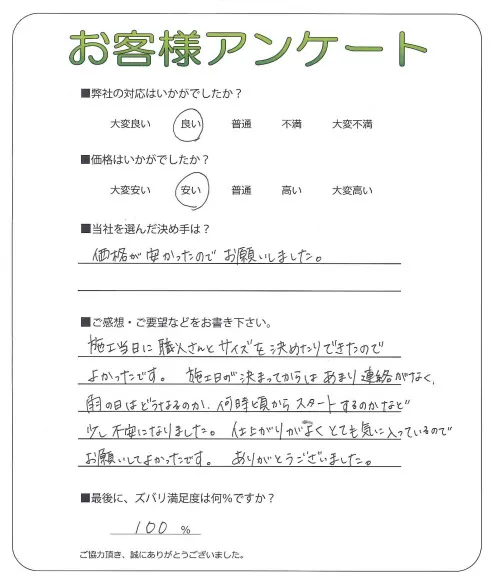 お客様アンケート
■弊社の対応はいかがでしたか？
大変良い 良い 普通 不満 大変不満
■価格はいかがでしたか？
大変安い 安い 普通 高い 大変高い
■当社を選んだ決め手は？
価格が安かったのでお願いしました。
■ご感想・ご要望などをお書き下さい。
施工当日に職人さんとサイズを決めたりできたので
よかったです。 施工日が決まってからはあまり連絡がなく、
雨の日はどうなるのか、何時頃からスタートするのかなど
少し不安になりました。 仕上がりがよくとても気に入っているので
お願いしてよかったです。 ありがとうございました。
■最後に、ズバリ満足度は何％ですか？
100 ％
ご協力頂き、誠にありがとうございました。